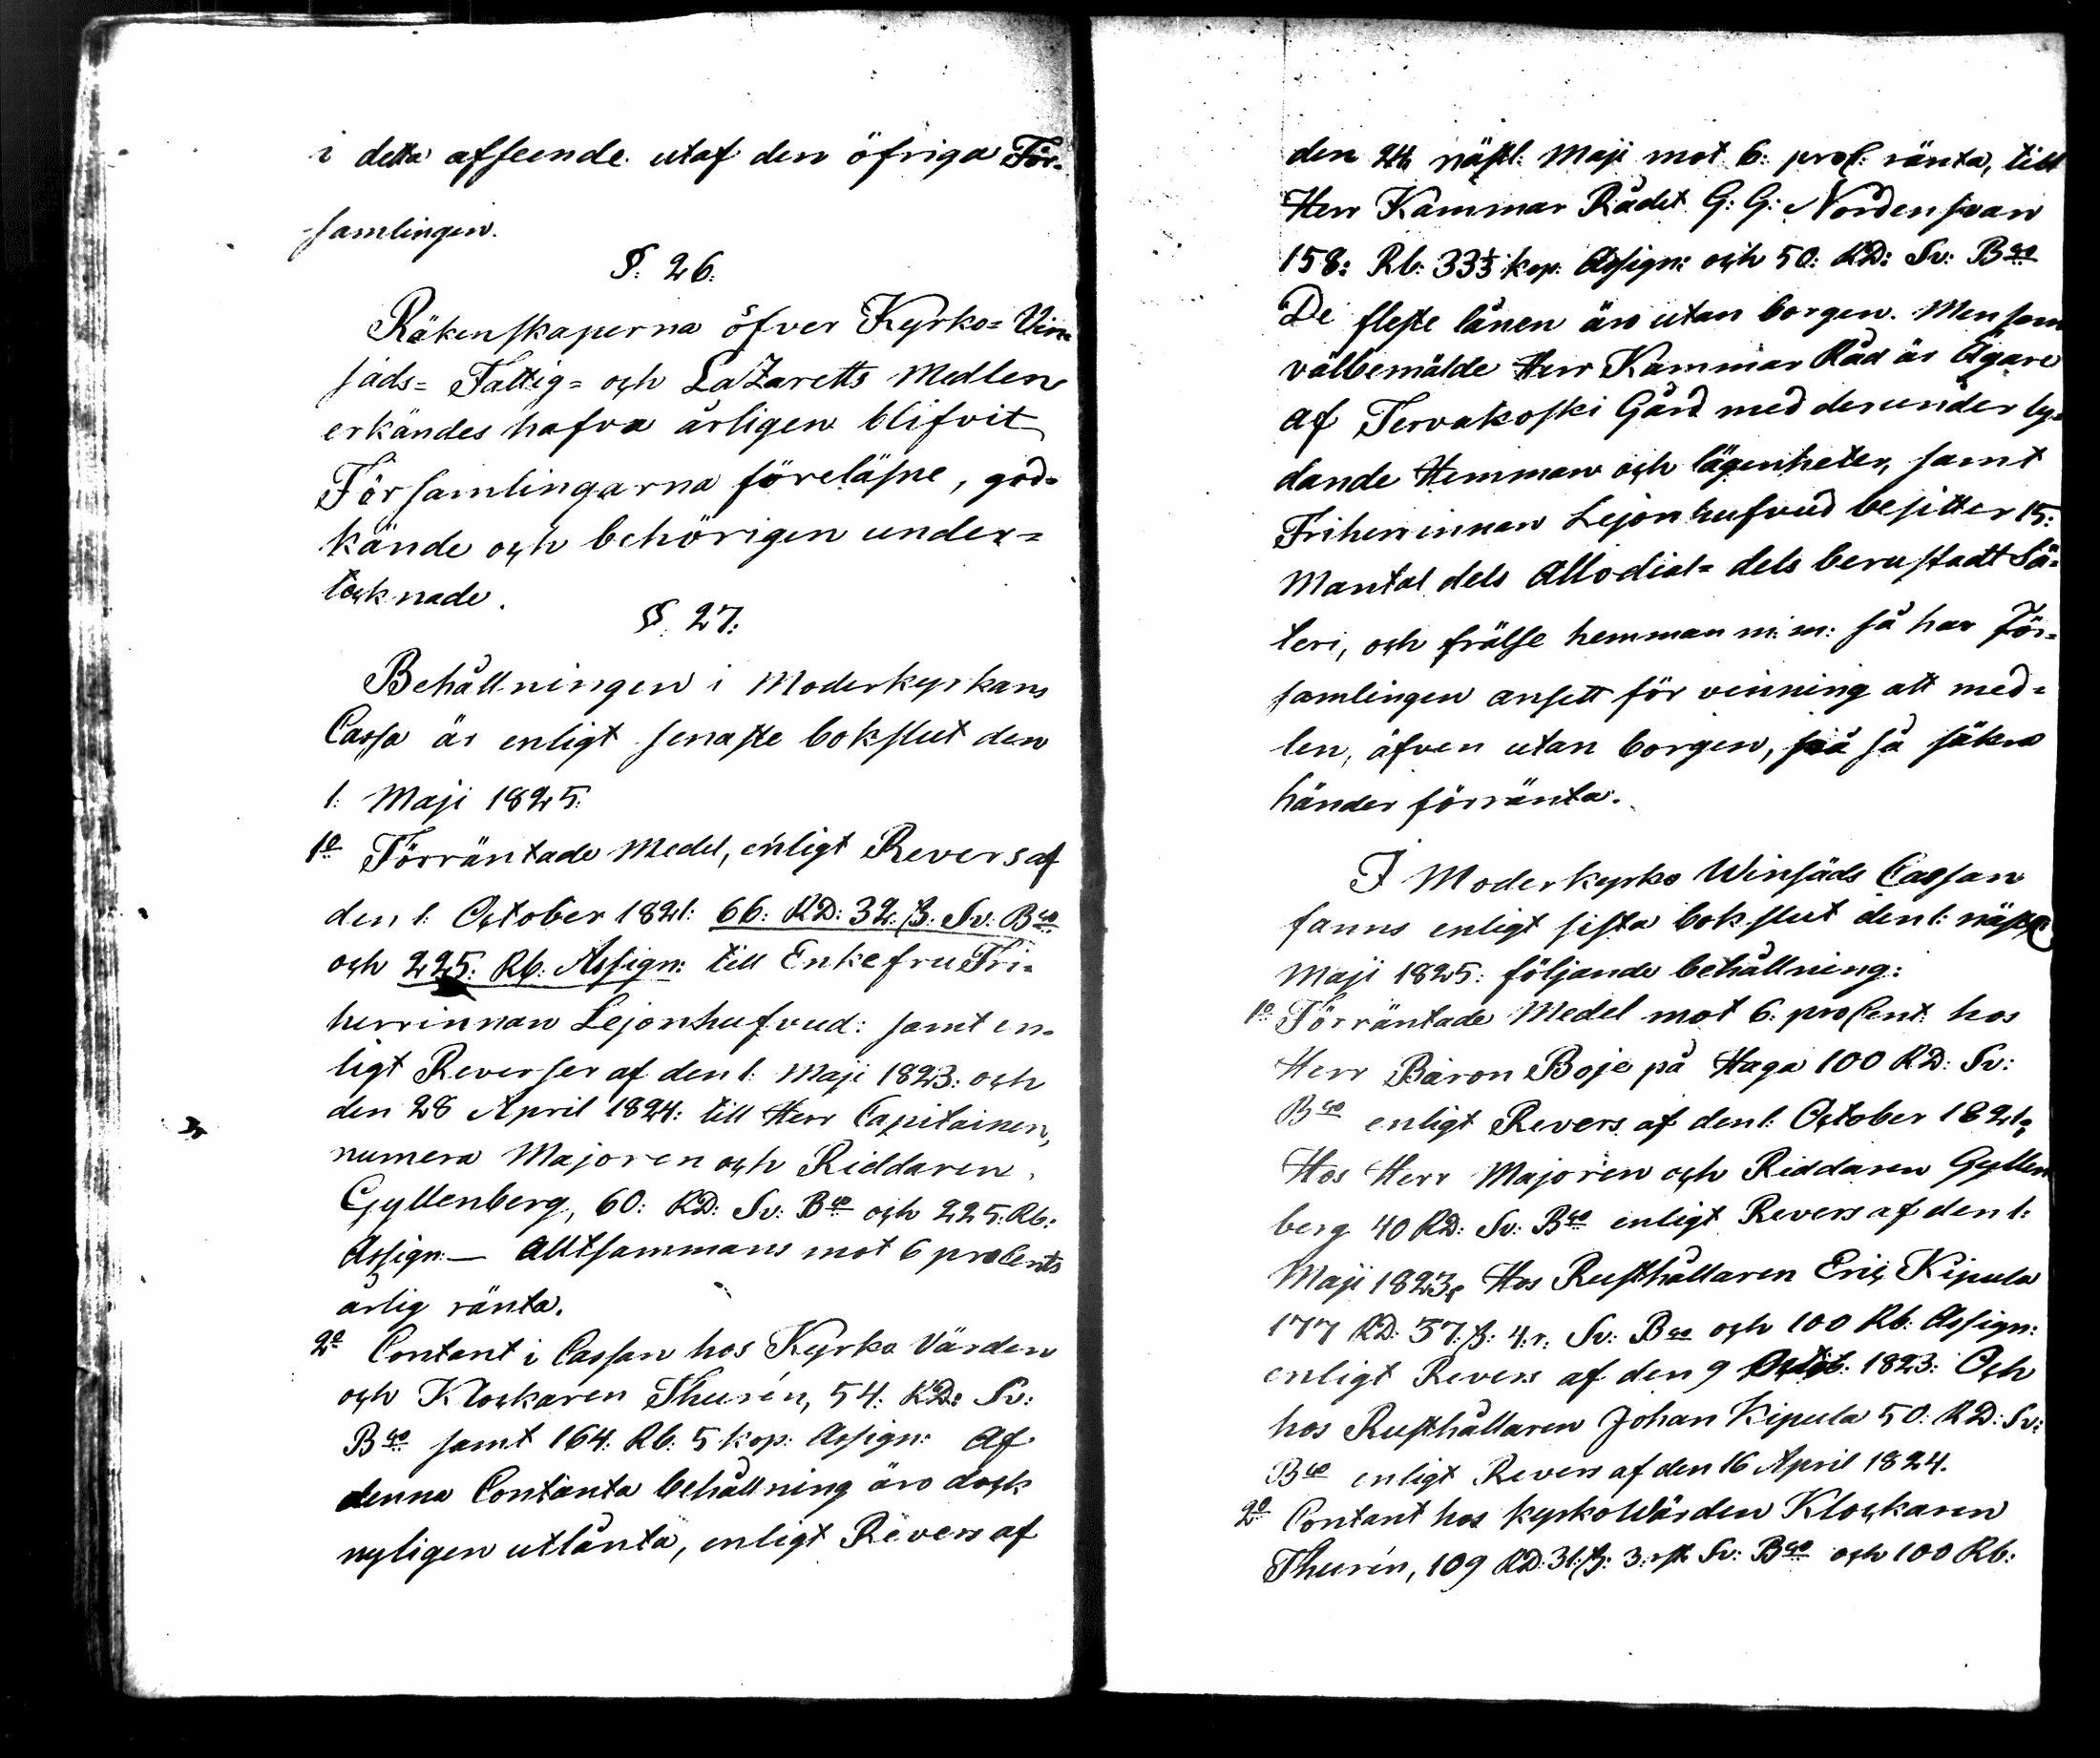 i detta afseende utaf den öfriga För-
samlingen.
§. 26.
Räkenskaperna öfver Kyrko= Vin-
säds= Fattig= och LaZaretts Medlen
erkändes hafva årligen blifvit
Församlingarna föreläsne, god-
kände och behörigen under=
tecknade.
§. 27:
Behållningen i Moderkyrkans
Cassa är enligt senaste bokslut den
1: Maji 1825:
1o Förräntade Medel, enligt Revers af
den 1: October 1821: 66: RD: 32: ß: Sv: Bco
och 225: Rb: Assign: till Enkefru Fri-
herrinnan Lejonhufvud: samt en-
ligt Reverser af den 1: Maji 1823: och
den 28 April 1824: till Herr Capitainen,
numera Majoren och Riddaren
Gyllenberg, 60: RD: Sv: Bco och 225: Rb:
Assign:— Alltsammans mot 6 procents
årlig ränta.
2o Contant i Cassan hos Kyrko Värden
och Klockaren Thurén, 54: RD: Sv:
Bco samt 164: Rb: 5 kop: Assign: Af
denna Contanta behållning äro dock
nyligen utlånta, enligt Revers af
den 24 nästl: Maji mot 6: proC: ränta, till
Herr Kammar Rådet G: G: Nordensvan
158: Rb: 33⅓ kop: Assign: och 50: RD: Sv: Bco
De fleste lånen äro utan borgen. Men som
välbemälde Herr Kammar Råd är Ägare
af Tervakoski Gård med derunder ly-
dande Hemman och lägenheter, samt
Friherrinnan Lejonhufvud besitter 15:
Mantal dels Allodial= dels berustadt Sä-
teri, och frälse hemman m: m: så har För-
samlingen ansett för vinning att med-
len, äfven utan borgen, på så säkra
händer förränta.
I Moderkyrko Winsäds Cassan
fanns enligt sista bokslut den 1: nästl:
Maji 1825: följande behållning:
1o Förräntade Medel mot 6: proCent: hos
Herr Baron Boje på Haga 100 RD: Sv:
Bco enligt Revers af den 1: October 1821;
Hos Herr Majoren och Riddaren Gyllen
berg 40 RD: Sv: Bco enligt Revers af den 1:
Maji 1823, Hos Rusthållaren Eric Kipula
177 RD: 37: ß: 4: r: Sv: Bco och 100 Rb: Assign:
enligt Revers af den 9 1823: Och
hos Rusthållaren Johan Kipula 50: RD: Sv:
Bco enligt Revers af den 16 April 1824.
2o Contant hos kyrkoWärden Klockaren
Thurén, 109 RD: 31: ß: 3: rst Sv: Bco och 100 Rb: